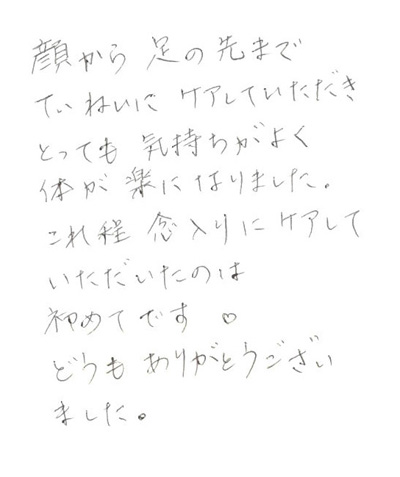 顔から 足の先まで
ていねいに ケアしていただき
とっても 気持ちがよく
体が 楽になりました。
これ程 念入りに ケアして
いただいたのは
初めてです ♡
どうも ありがとうござい
ました。